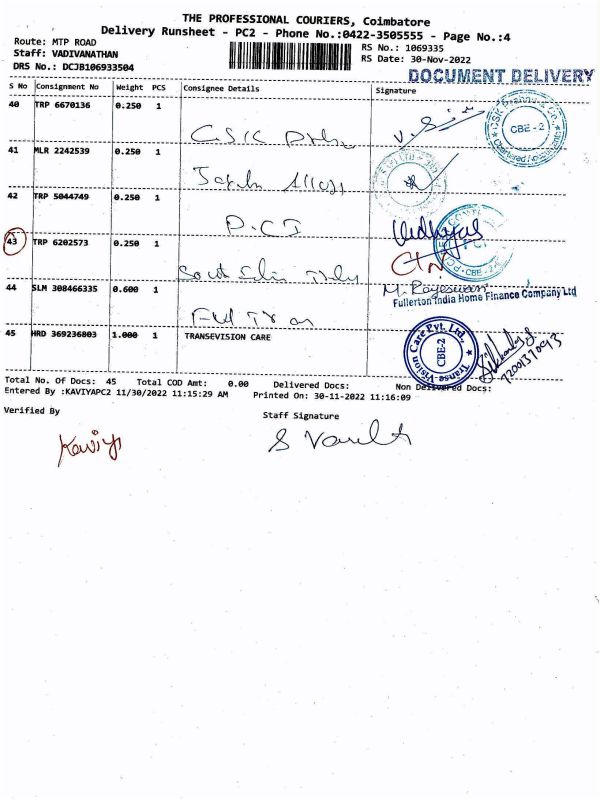 THE PROFESSIONAL COURIERS, Coimbatore
Delivery Runsheet - PC2 - Phone No.:0422-3505555 - Page No.:4
Route: MTP ROAD
Staff: VADIVANATHAN
DRS No.: DCJB106933504
RS No.: 1069335
RS Date: 30-Nov-2022
DOCUMENT DELIVERY
S No Consignment No Weight PCS Consignee Details Signature
40 TRP 6670136 0.250 1
CBE-2
41 MLR 2242539 0.250 1
42 TRP 5044749 0.250 1
D.C.I
43 TRP 6202573 0.250 1
44 SLM 308466335 0.600 1
Fullerton India Home Finance Company Ltd
45 HRD 369236803 1.000 1 TRANSEVISION CARE
Transe-Vision Care Pvt. Ltd., CBE-2
7200137093
Total No. Of Docs: 45 Total COD Amt: 0.00 Delivered Docs: Non Delivered Docs:
Entered By :KAVIYAPC2 11/30/2022 11:15:29 AM Printed On: 30-11-2022 11:16:09
Verified By Staff Signature
Kaviya